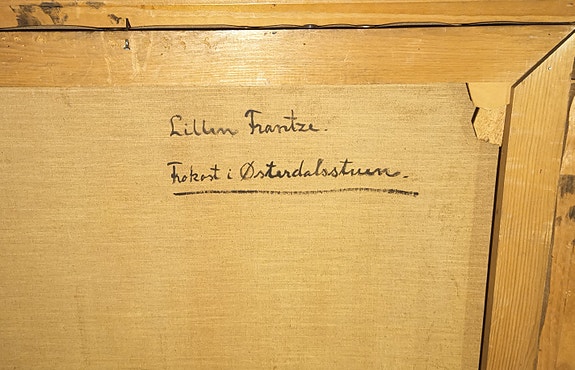 Lillen Frantze.
Frokost i Østerdalsstuen.